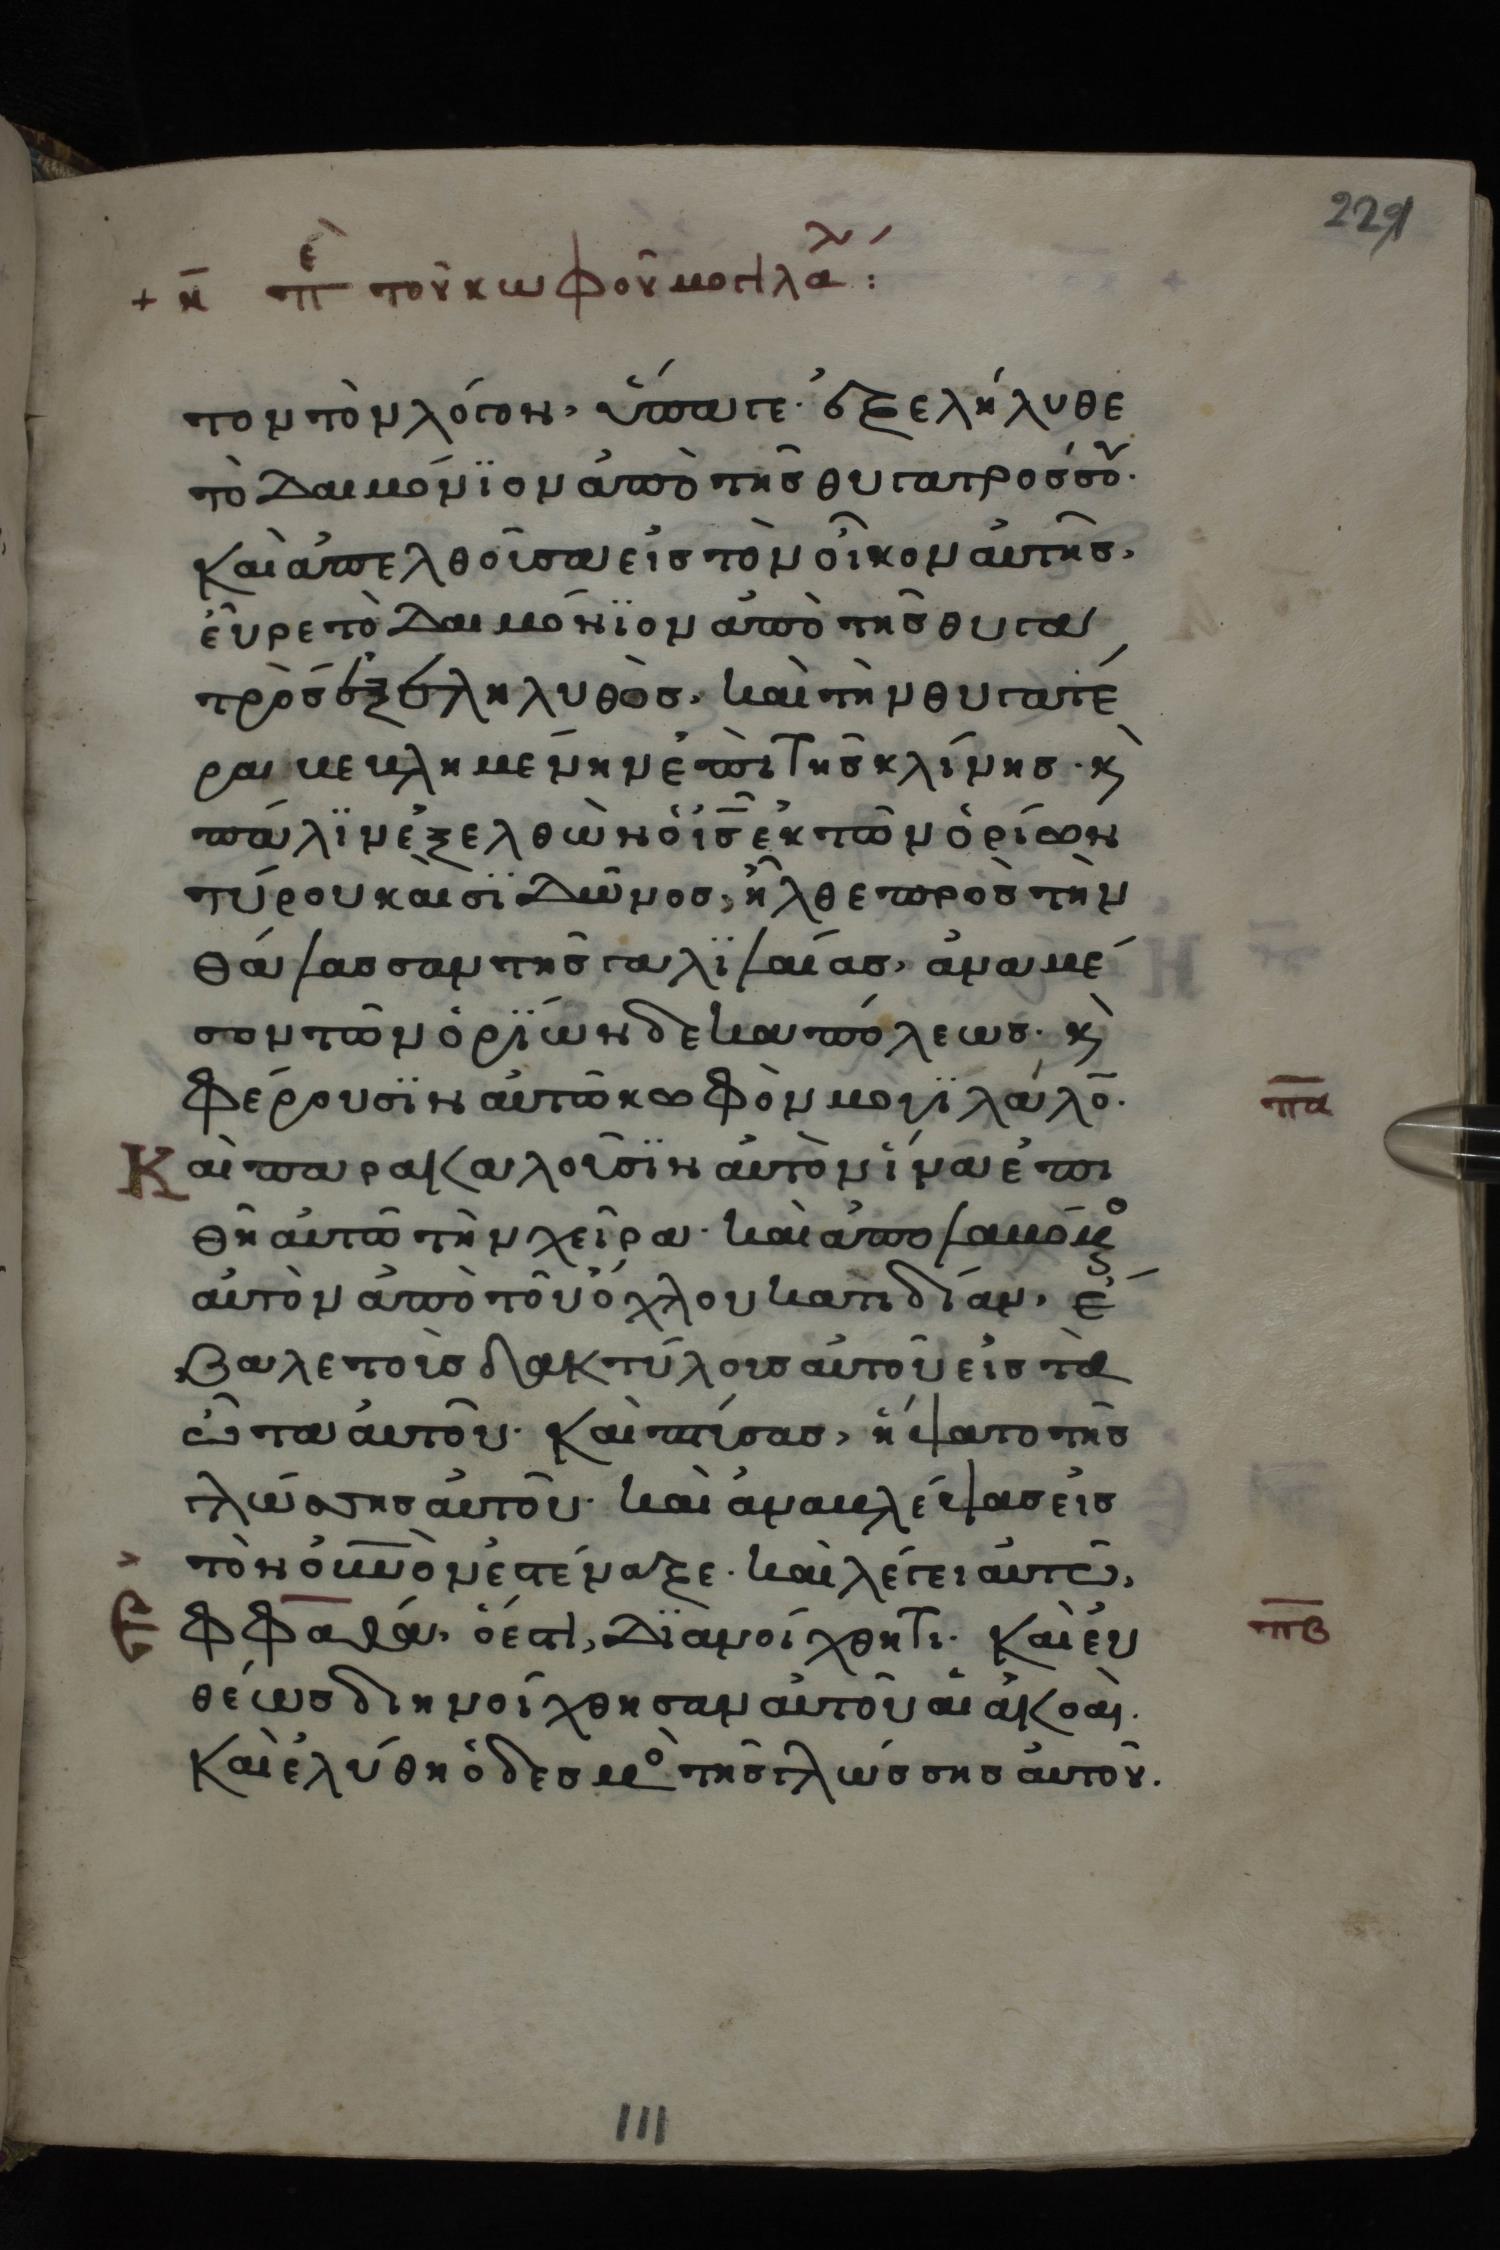 229
+ κ̄ πε̇ τοῦ κωφοῦ μογιλάλ :
τον τὸν λόγον, ὕπαγε· ἐξελήλυθε
τὸ δαιμόνϊον ἀπὸ τῆς θυγατρός σου·
Καὶ ἀπελθοῦσα εἰς τὸν οἶκον αὐτῆς,
εὗρε τὸ δαιμόνϊον ἀπὸ τῆς θυγα
τρὸς ἐξεληλυθὸς, καὶ τὴν θυγατέ
ρα κεκλημένην ἐπὶ τῆς κλίνης· κ̀
πάλϊν ἐξελθὼν ὁ ἰς̄ ἐκ τῶν ὁρίων
τύρου καὶ σϊδῶνος, ἦλθε πρὸς τὴν
θάλασσαν τῆς γαλϊλαίας, ἀνα μέ
σον τῶν ὁρϊών δεκαπόλεως· κ̀
Φέρουσϊν αὐτῶ κωφὸν μογϊλάλο̄·
πα
Καὶ παρακαλοῦσϊν αὐτὸν ἵνα ἐπι
θῆ αὐτῶ τὴν χεῖρα· καὶ ἀπολαβόμενος
αὐτὸν ἀπὸ τοῦ ὄχλου κατιδίαν, ἔ
βαλε τοὺς δακτύλους αὐτοῦ εἰς τὰ
ὦτα αὐτοῦ· Καὶ πτύσας, ἥψατο τῆς
γλώσσης αὐτοῦ· καὶ ἀναβλέψας εἰς
τὸν οὐνὸν ἐστέναξε· καὶ λέγει αὐτῶ,
Ἐφφαθά, ὅ ἐστι, Δϊανοίχθητι· Καὶ εὐ
πβ
θέως διηνοίχθησαν αὐτοῦ αἱ ἀκοαὶ·
Καὶ ἐλύθη ὁ δεσμὸ τῆς γλώσσης αὐτοῦ.
111